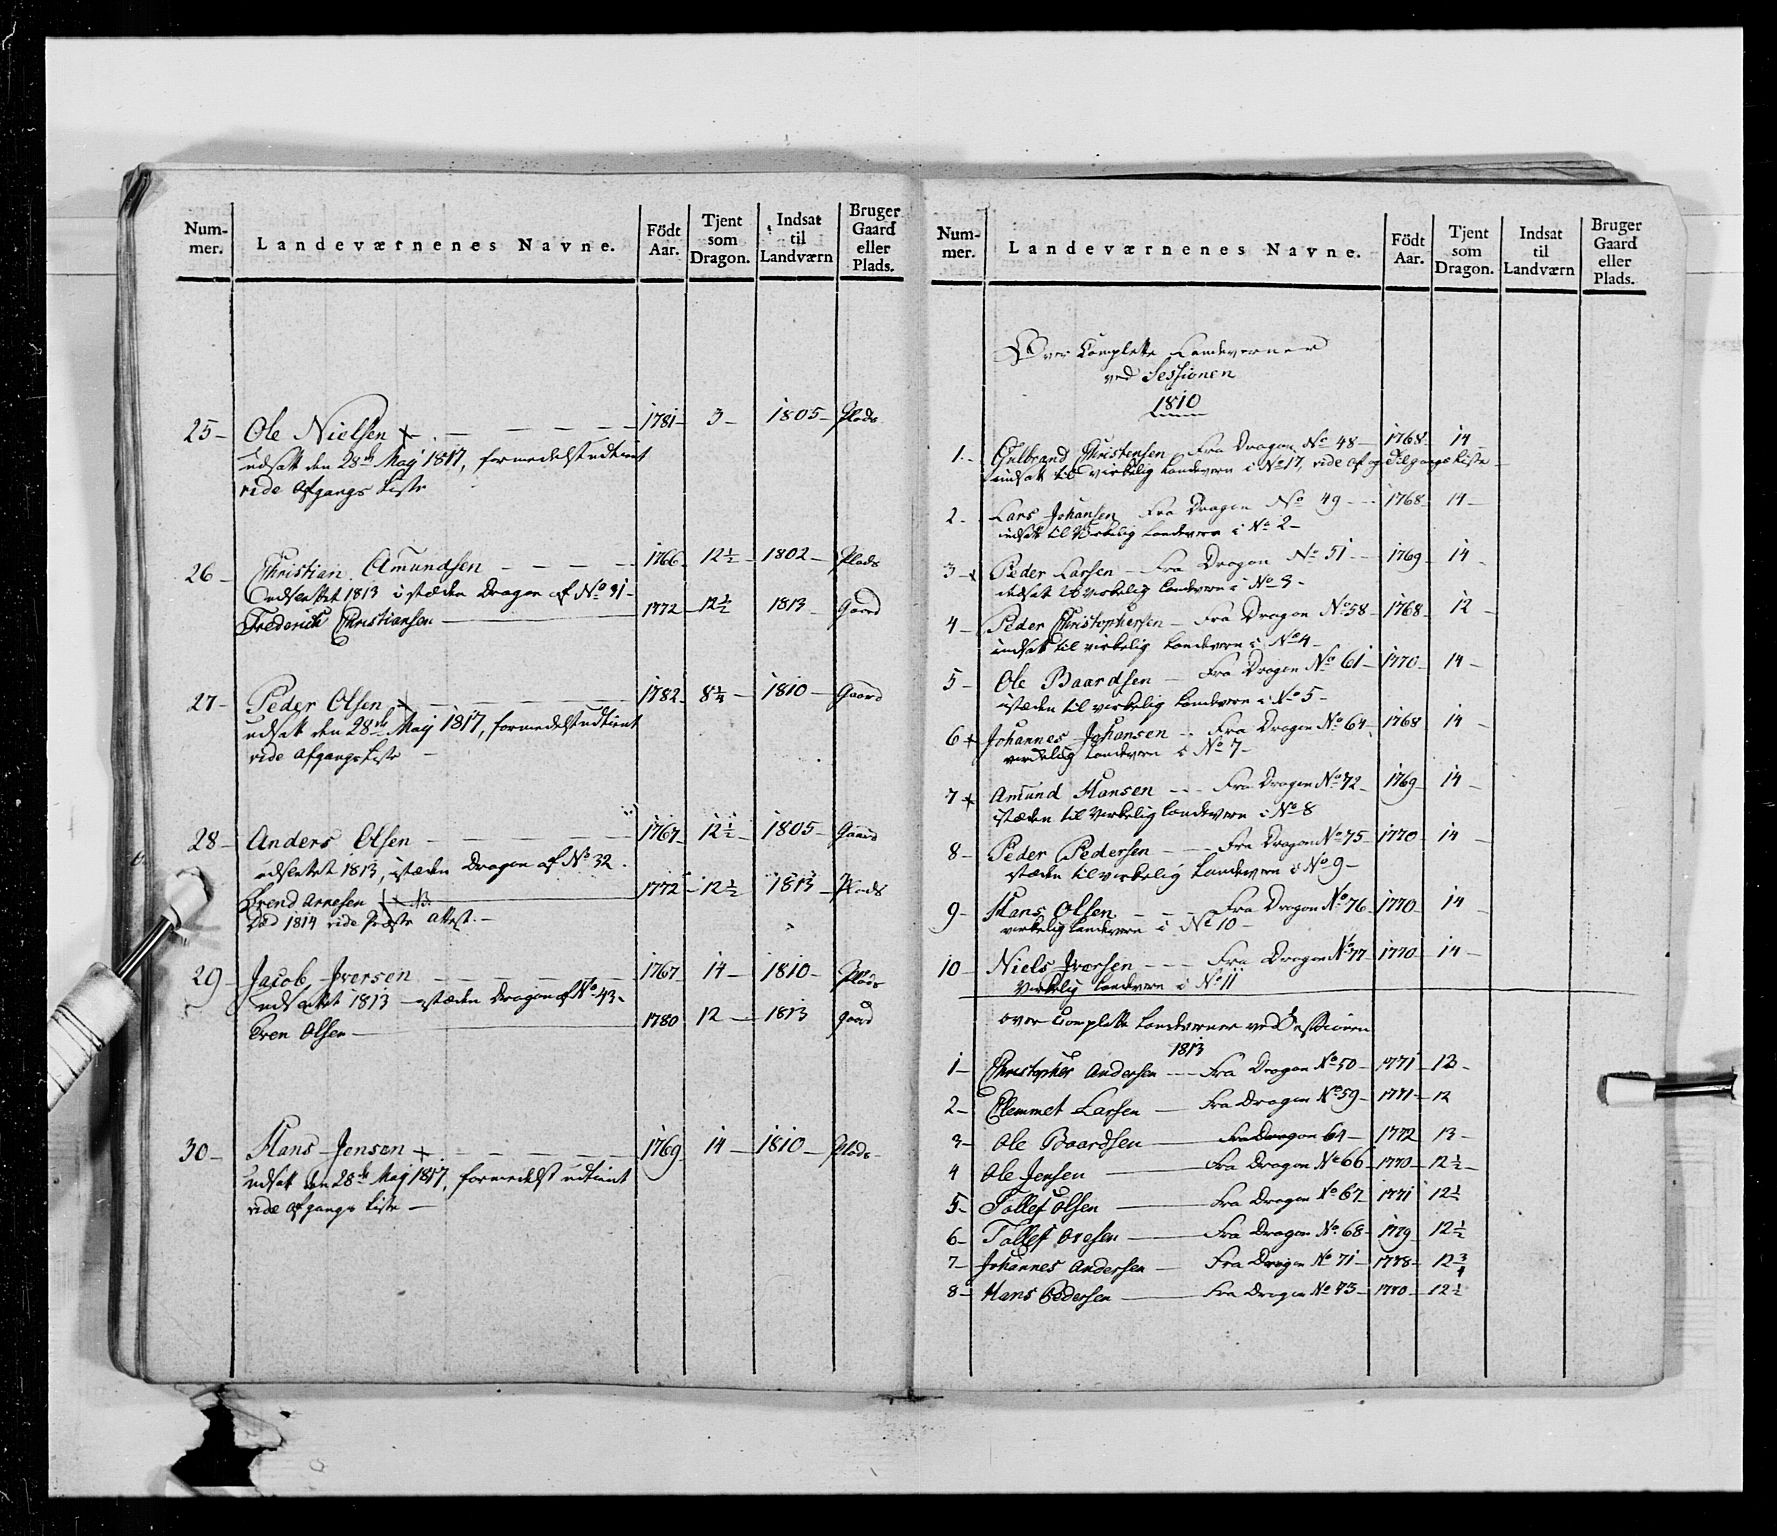 Num-
mer.
Landeværnenes Navne.
Födt
Aar.
Tjent
som
Dragon.
Indsat
til
Landværn
Bruger
Gaard
eller
Plads.
25 – Ole Nielsen + – – – 1781 – 3 – 1805 – Plads
udsatt den 28de Maij 1817, formedelst udtient
vide Afgangs Liste
26 – Christian Amundsen – – – – 1766 – 12½ – 1802 – Plads
udslettet 1813 i stæden Dragon af No 31 –
Frederich Christiansen – 1772 – 12½ – 1813 – Gaard
27 – Peder Olsen + – – – 1782 – 8¼ – 1810 – Gaard
udsatt den 28de Maij 1817, formedelst udtient
vide Afgangs Liste –
28 – Anders Olsen – – – – 1767 – 12½ – 1805 – Gaard
udslettet 1813, istæden Dragon af No 32.
Arnesen – 1772 – 12½ – 1813 – Plads
Död 1814 vide Præste Attest. –
29 – Jacob Iversen – – – – 1767 – 14 – 1810 – Plads
udslettet 1813 – istæden Dragon af No 43 –
Even Olsen – 1780 – 12 – 1813 Gaard
30 – Hans Jensen + – – – – 1769 – 14 – 1810 – Plads
udsatt den 28de Maij 1817, formedelst udtient
vide Afgangs Liste –
Num-
mer.
Landeværnenes Navne.
Födt
Aar.
Tjent
som
Dragon.
Indsat
til
Landværn
Bruger
Gaard
eller
Plads.
Over Complette Landeverner
ved Sessionen
1810
1. – Gulbrand Christensen Fra Dragon No 48 – 1768 – 14 –
indsatt til virkelig Landevern i No 17, vide Af og Tilgangs Liste –
2 – Lars Johansen Fra Dragon No 49 – – 1768 – 14 –
indsatt til Virkelig Landevern i No 2 –
3 – + Peder Larsen – Fra Dragon No 51 – – 1769 – 14 –
indsat til virkelig landevern i No 3 –
4 – Peder Christophersen – Fra Dragon No 58 – 1768 – 12 –
indsatt til virkelig Landevern i No 4 –
5 – Ole Baardsen – Fra Dragon No 61 – 1770 – 14 –
istæden til virkelig Landevern i No 5 –
6 + Johannes Johansen – Fra Dragon No 64 – 1768 14 –
virkelig Landevern i No 7 –
7 + Amund Hansen – – – Fra Dragon No 72 – 1769 – 14 –
istæden til Virkelig landevern i No 8
8 – Peder Pedersen – – – Fra Dragon No 75 – 1770 – 14 –
istæden til virkelig Landevern i No 9 –
9 – Hans Olsen – – – Fra Dragon No 76 – 1770 – 14 –
virkelig Landevern i No 10 –
10 – Niels Iversen – – – Fra Dragon No 77 – 1770 – 14 –
Virkelig Landevern i No 11
over Complette Landeverner ved Sessionen
1813
1 – Christopher Andersen – – – Fra Dragon No 50 – 1771 – 13 –
2 – Clemmet Larsen – Fra Dragon No 59 – 1771 – 12
3 – Ole Baardsen – Fra Dragon 64 – 1772 13 –
4 Ole Jensen – Fra Dragon No 66 – 1770 – 12½ –
5 – Tollef Olsen – Fra Dragon No 67 – 1771 12½
6 – Tollef – Fra Dragon No 68 – 1779 12½
7 – Johannes Andersen – Fra Dragon No 71 – 1778 – 12¾
8 – Hans Pedersen – Fra Dragon No 73 – 1770 – 12½